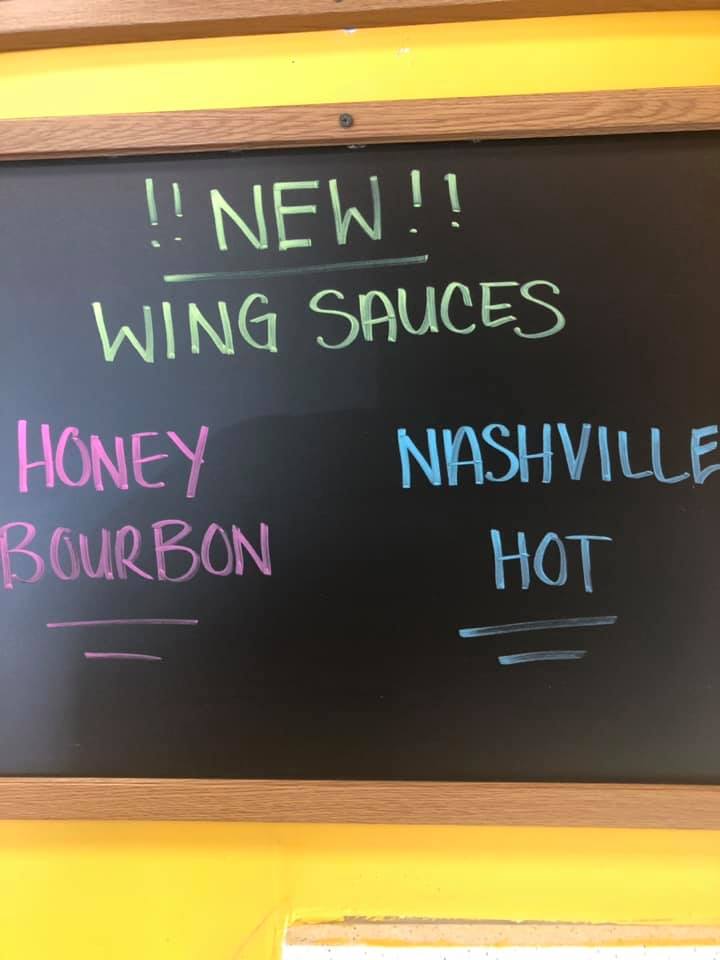 !! NEW !!
WING SAUCES
HONEY
BOURBON
NASHVILLE
HOT